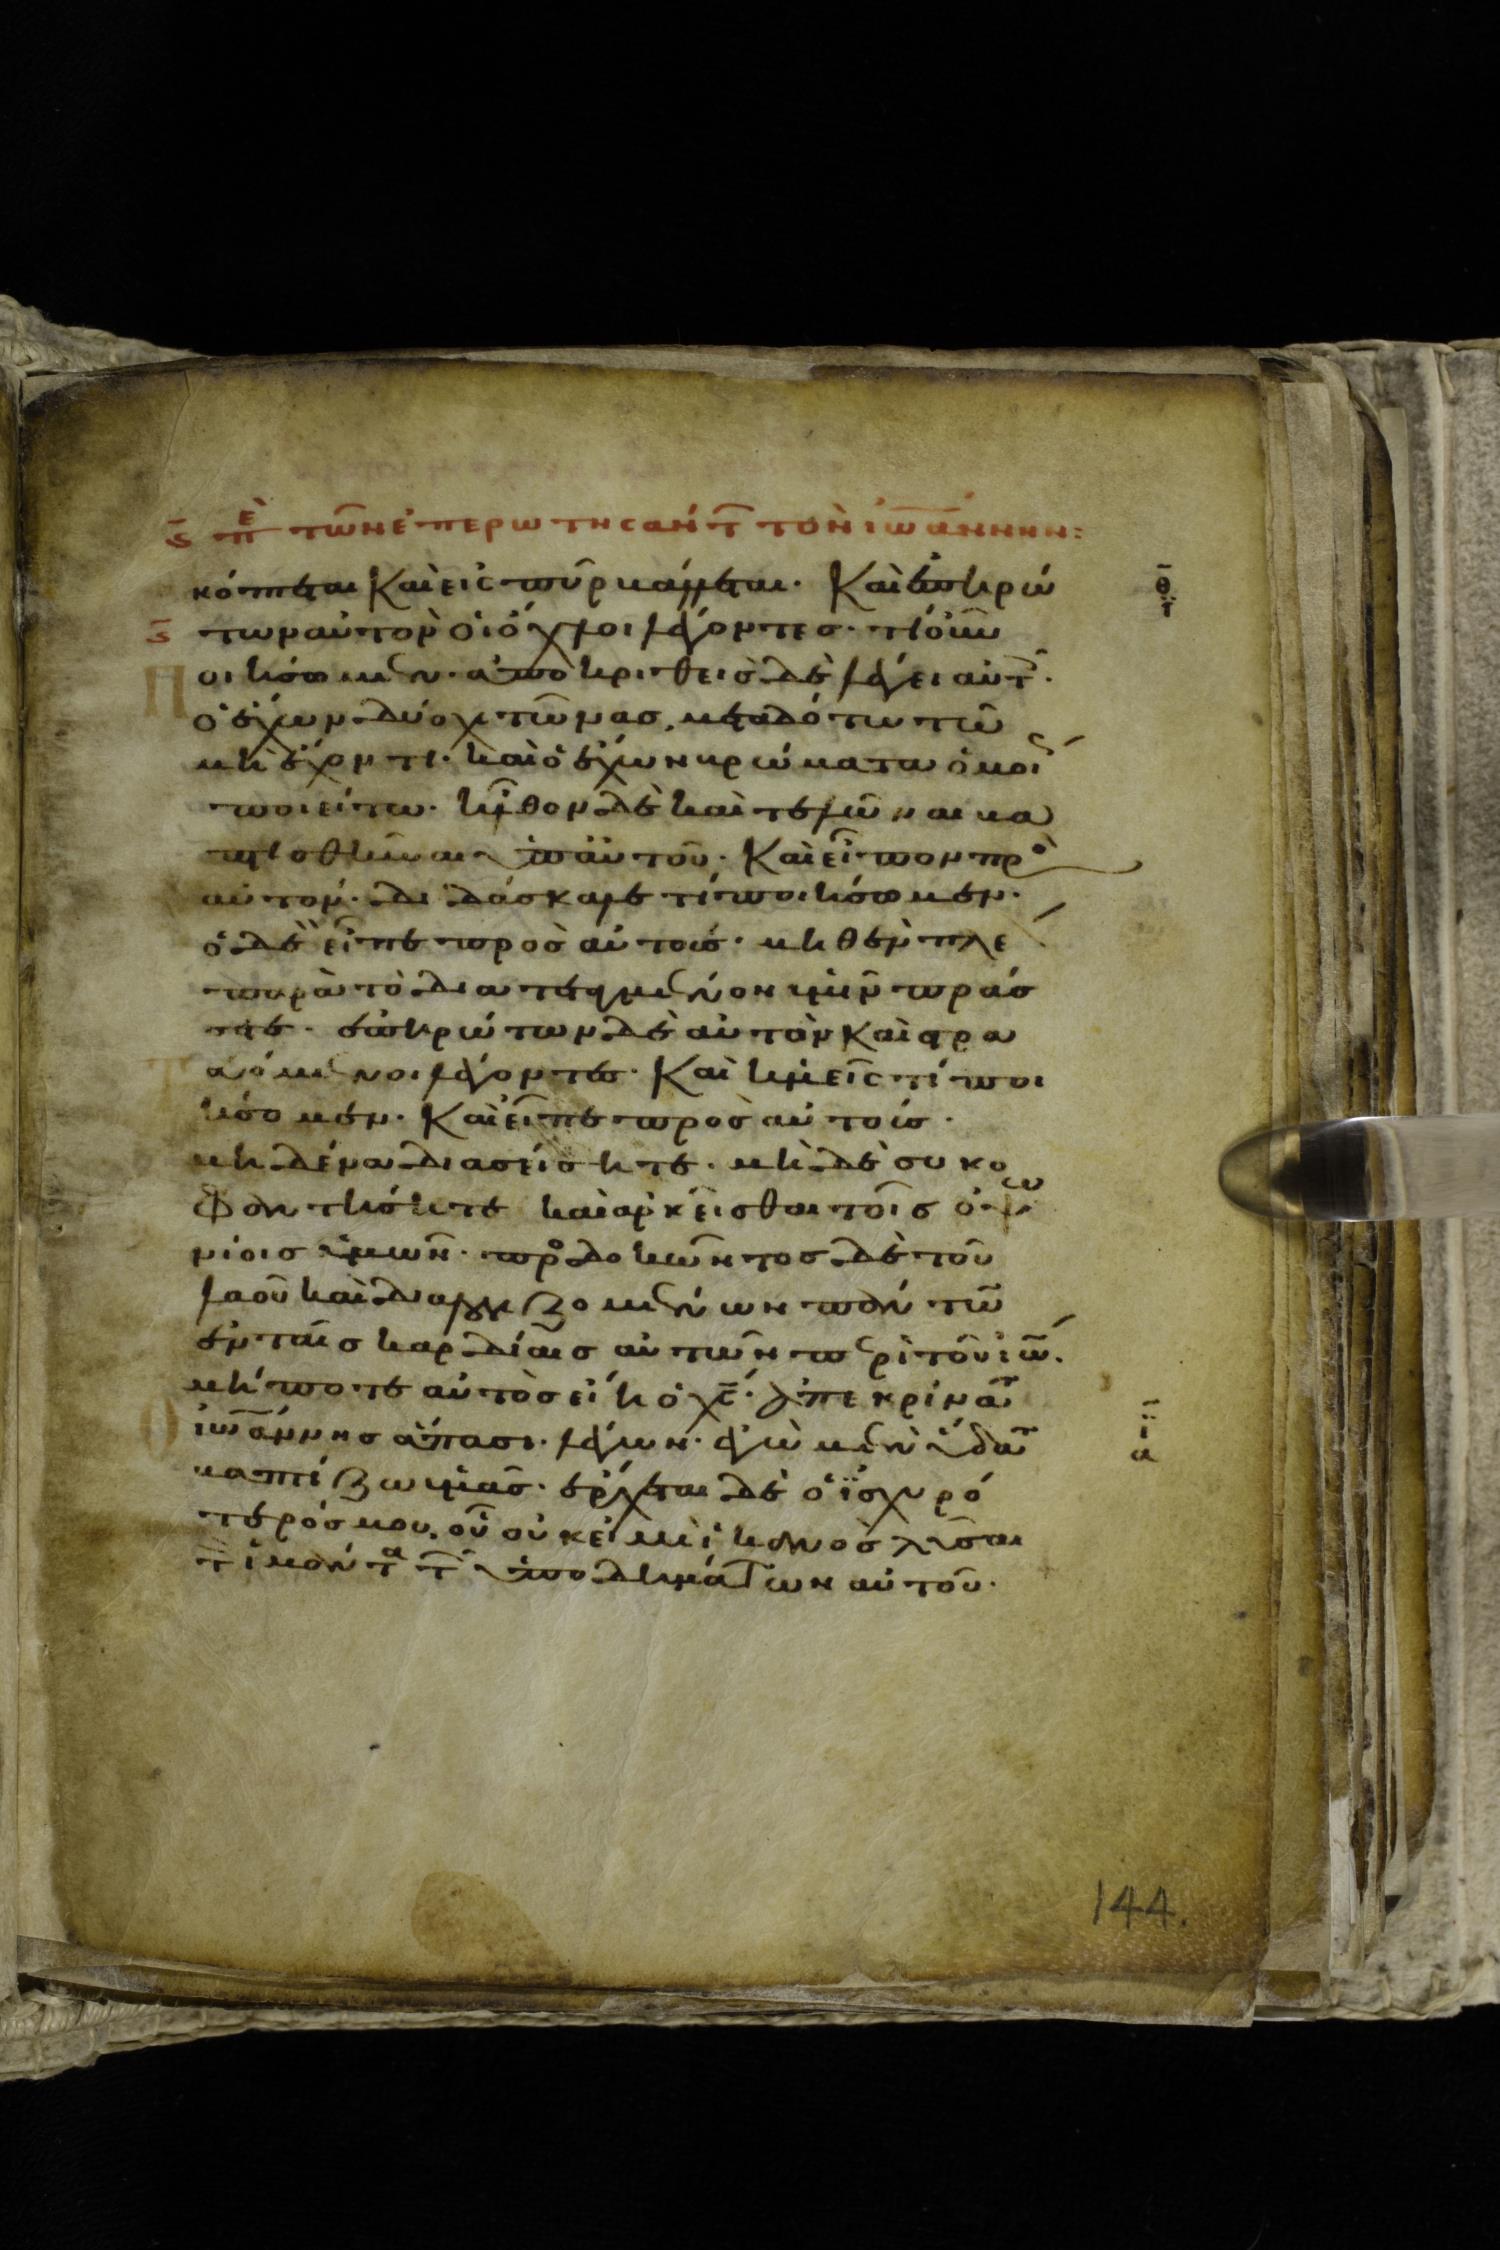 ϛ̅ πὲ τῶν ἐπερωτησάντ̅ τὸν ἰωάννην:
κόπτεται καὶ εἰς πῦρ βάλλεται. Καὶ ἐπηρώ
θ̅ ι
ϛ̅ των αὐτὸν οἱ ὄχλοι λέγοντες. τί οὖν
ποιήσωμεν. ἀποκριθεὶς δὲ λέγει αὐτ.
ὁ ἔχων δύο χιτῶνας, μεταδότω τῶ
μὴ ἔχοντι. καὶ ὁ ἔχων βρώματα ὁμοί
ποιείτω. ἦλθον δὲ καὶ τελῶναι βα
πτισθῆναι ὑπ αὐτοῦ. Καὶ εἶπον πρὸ
αὐτόν. διδάσκαλε τί ποιήσωμεν.
ὁ δὲ εἶπε πρὸς αὐτούς. μηθὲν πλέ
παρὰ τὸ διατεταγμένον ὑμῖν πράσ
τε. ἐπηρώτων δὲ αὐτὸν καὶ στρα
τευόμενοι λέγοντες. Καὶ ἡμεῖς τί ποι
ήσομεν. Καὶ εἶπε πρὸς αὐτούς.
μηδένα διασείσητε. μὴ δὲ συκο
φαντήσητε καὶ ἀρκεῖσθαι τοῖς ὀψω
νίοις ὑμῶν. προσδοκῶντος δὲ τοῦ
λαοῦ καὶ διαλογιζομένων πάντω
ἐν ταῖς καρδίαις αὐτῶν περὶ τοῦ ἰω.
μήποτε αὐτὸς εἴη ὁ χς̅. ἀπεκρίνατ
ὁ ἰωάννης ἅπασι. λέγων. ἐγὼ μὲν ὕδατ
ι̅ α
βαπτίζω ὑμᾶς. ἔρχεται δὲ ὁ ἰσχυρό
τερός μου, οὗ οὐκ εἰμὶ ἱκανὸς λῦσαι
τ ἱμάντα τ ὑποδημάτων αὐτοῦ.
144.